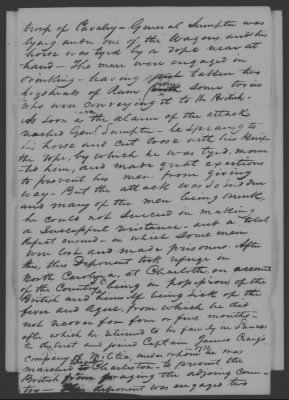 troop of Cavalry - General Sumpter was
lying under one of the Wagons and his
horse was tyed by a rope near at
hand - The men were engaged in
drinking - having just taken two
hogsheads of Rum from some tories
who were conveying it to the British -
As soon as the alarm of the attack
reached Genl Sumpter - he sprang to
his horse and cut loose with his knife
the rope, by which he was tyed, moun
-ted him, and made great exertions
to prevent his men from giving
way - But the attack was so sudden
and many of the men being drunk,
he could not succeed in making
a successful resistance - and a total
defeat ensued - in which some men
were lost and made prisoners. After
this, this Deponent took refuge in
North Carolina, at Charlotte, on account
of the Country being in possession of the
British and himself being sick of the
fever and Ague, from which he did
not recover for four or five months -
after which he returned to his family in Lancas
ter district and joined Captain James Craig's
company of Militia, under whom he was
marched to Charleston - to prevent the
British from foraging the adjoing Coun-
try - deponent was engaged two